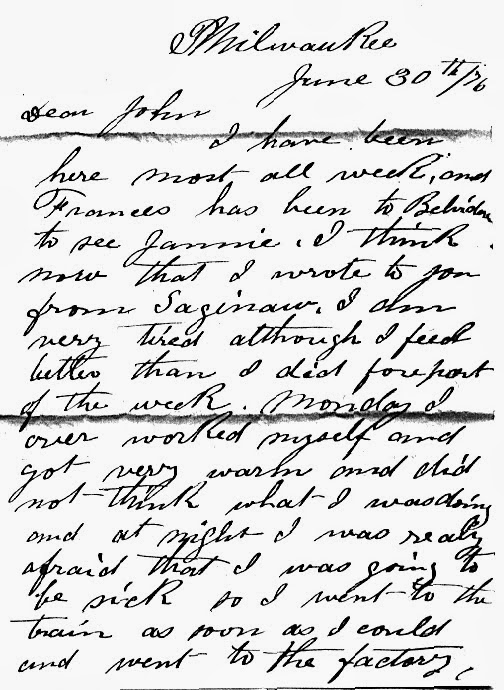 Milwaukee
June 30th/76
Dear John
I have been
here most all week, and
Frances has been to Belvidere
to see Jannie. I think
now that I wrote to you
from Saginaw. I am
very tired although I feel
better than I did forepart
of the week. Monday I
over worked myself and
got very warm and did
not think what I was doing
and at night I was really
afraid that I was going to
be sick so I went to the
train as soon as I could
and went to the factory,